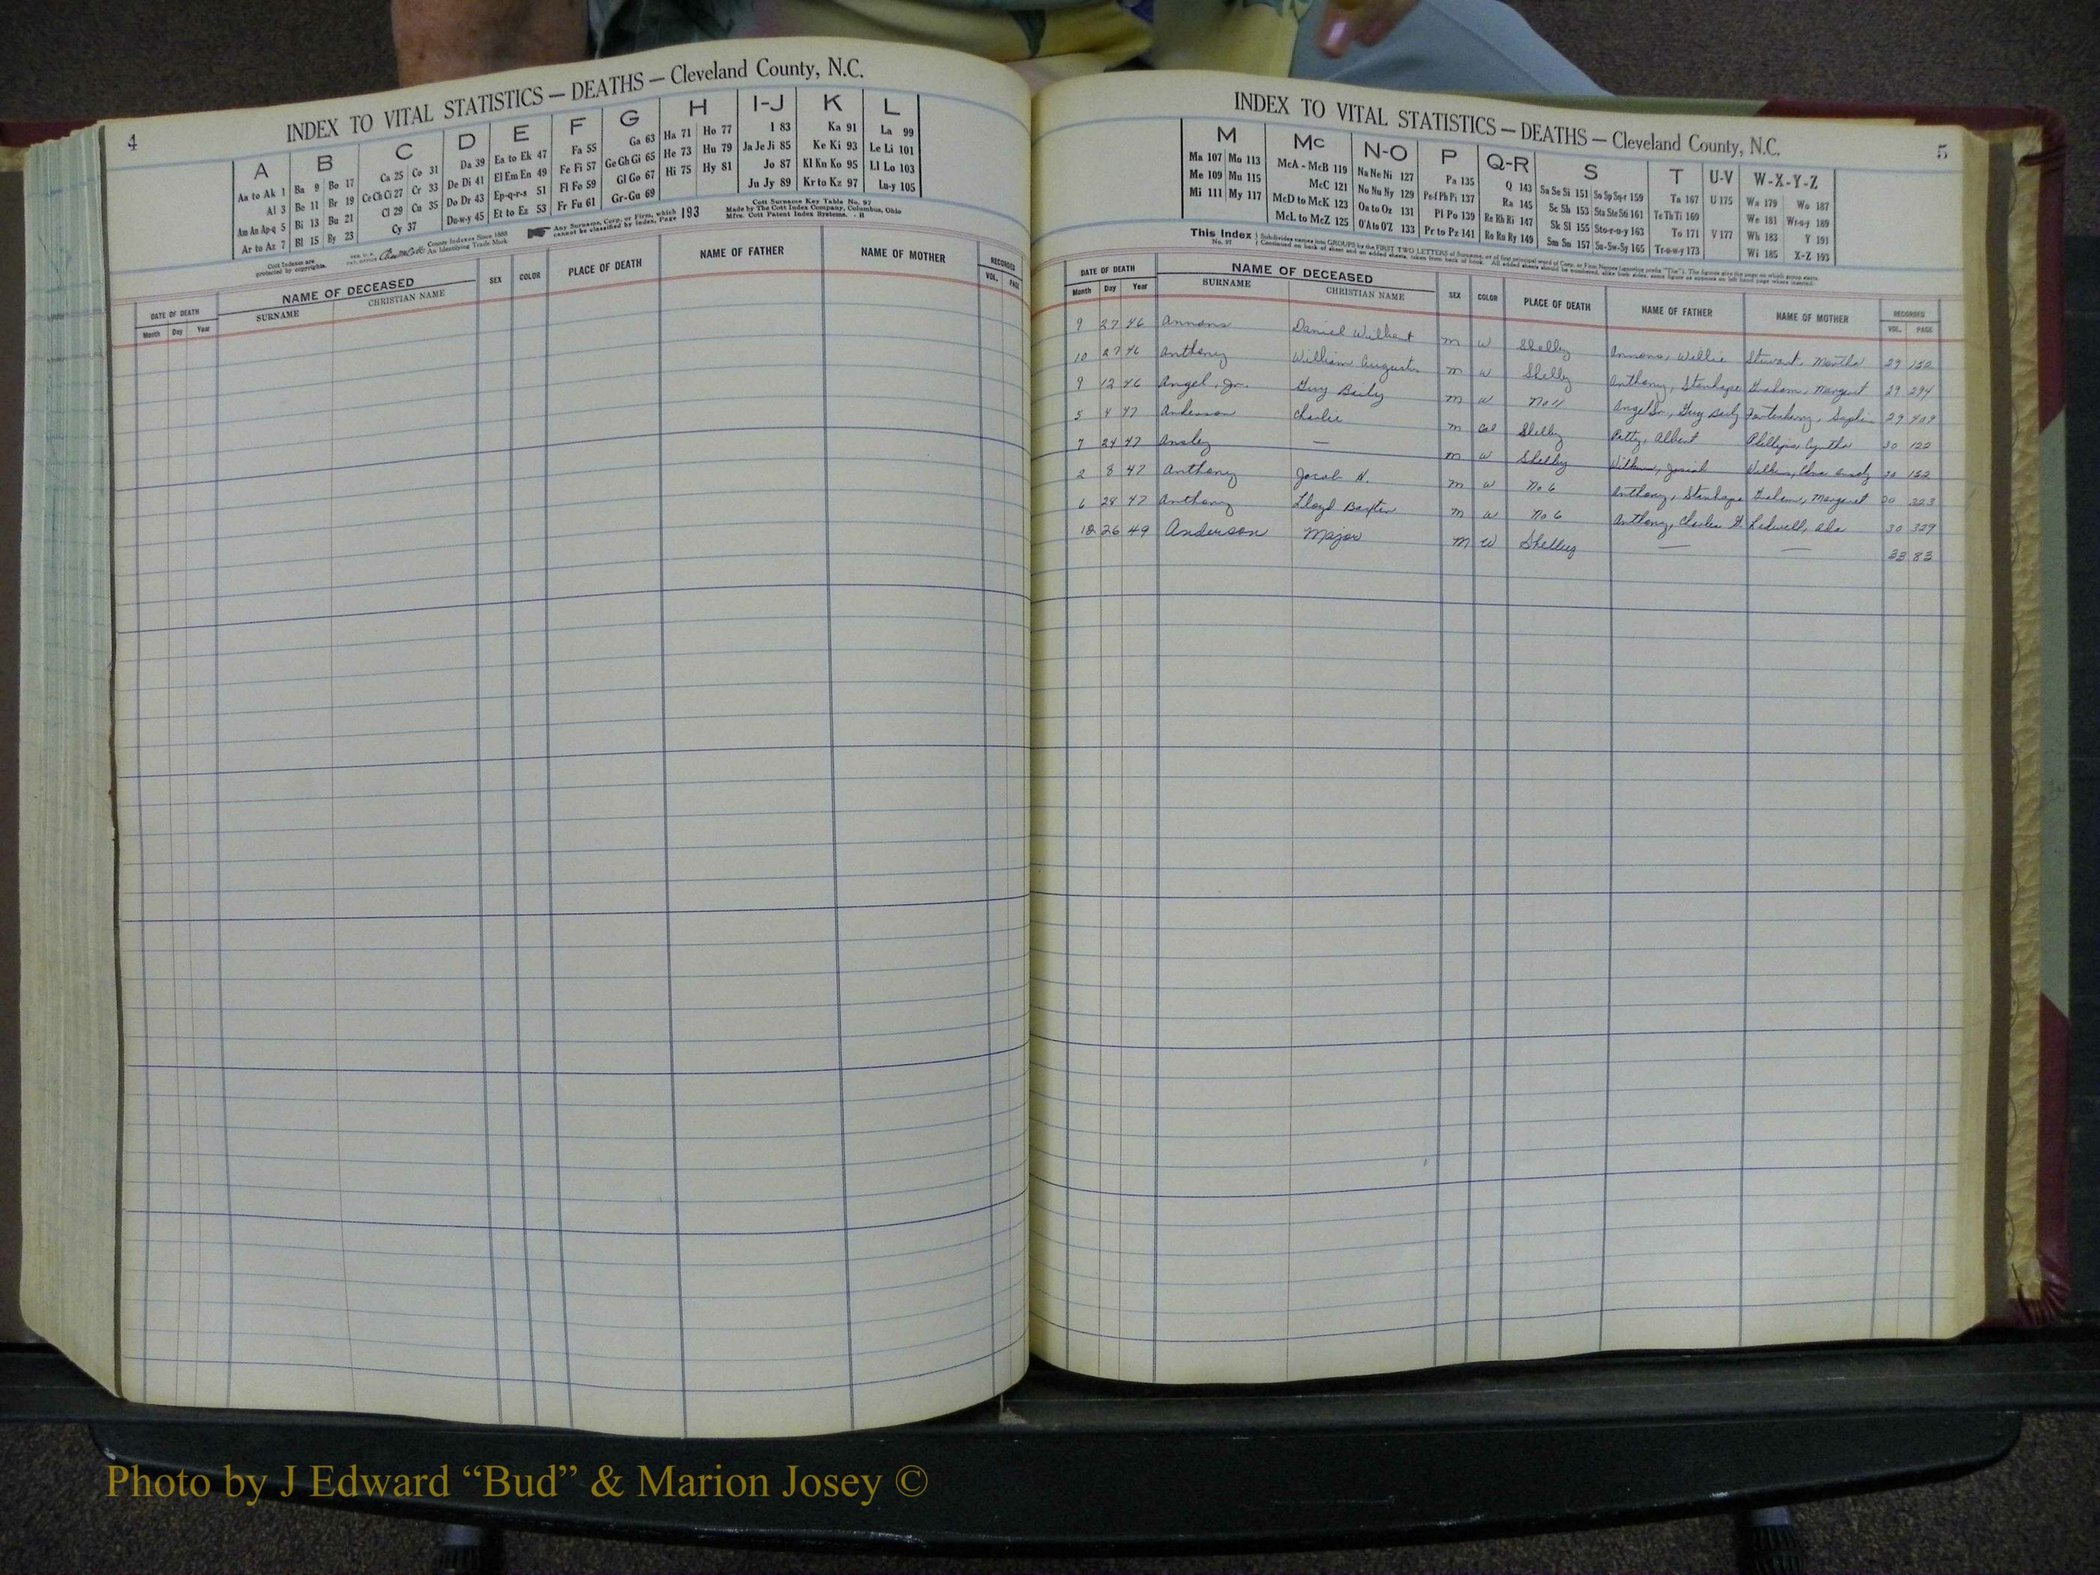 4
INDEX TO VITAL STATISTICS — DEATHS — Cleveland County, N.C.
A B C D E F G H I-J K L
Aa to Ak 1 Ba 9 Bo 17 Ca 25 Co 31 Da 39 Ea to Ek 47 Fa 55 Ga 63 Ha 71 Ho 77 I 83 Ka 91 La 99
Al 3 Be 11 Br 19 Ce Ch Ci 27 Cr 33 De Di 41 El Em En 49 Fe Fi 57 Ge Gh Gi 65 He 73 Hu 79 Ja Je Ji 85 Ke Ki 93 Le Li 101
Am An Ap-q 5 Bi 13 Bu 21 Cl 29 Cu 35 Do Dr 43 Ep-q-r-s 51 Fl Fo 59 Gl Go 67 Hi 75 Hy 81 Jo 87 Kl Kn Ko 95 Ll Lo 103
Ar to Az 7 Bl 15 By 23 Cy 37 Du-w-y 45 Et to Ez 53 Fr Fu 61 Gr-Gu 69 Ju Jy 89 Kr to Kz 97 Lu-y 105
Cott Indexes are protected by copyrights.
County Indexes Since 1888
An Identifying Trade Mark
Any Surname, Corp. or Firm, which cannot be classified by Index, Page 193
Cott Surname Key Table No. 97
Made by The Cott Index Company, Columbus, Ohio
DATE OF DEATH NAME OF DECEASED SEX COLOR PLACE OF DEATH NAME OF FATHER NAME OF MOTHER RECORDED
Month Day Year SURNAME CHRISTIAN NAME VOL. PAGE
INDEX TO VITAL STATISTICS — DEATHS — Cleveland County, N.C.
5
M Mc N-O P Q-R S T U-V W-X-Y-Z
Ma 107 Mo 113 McA - McB 119 Na Ne Ni 127 Pa 135 Q 143 Sa Se Si 151 So Sp Sq-r 159 Ta 167 U 175 Wa 179 Wo 187
Me 109 Mu 115 McC 121 No Nu Ny 129 Pe-f Ph Pi 137 Ra 145 Sc Sh 153 Sta Ste Sti 161 Te Th Ti 169 We 181 Wr-u-y 189
Mi 111 My 117 McD to McK 123 Oa to Oz 131 Pl Po 139 Re Rh Ri 147 Sk Sl 155 Sto-r-u-y 163 To 171 V 177 Wh 183 Y 191
McL to McZ 125 O'A to O'Z 133 Pr to Pz 141 Ro Ru Ry 149 Sm Sn 157 Su-Sw-Sy 165 Tr-u-w-y 173 Wi 185 X-Z 193
This Index No. 97
DATE OF DEATH NAME OF DECEASED SEX COLOR PLACE OF DEATH NAME OF FATHER NAME OF MOTHER RECORDED
Month Day Year SURNAME CHRISTIAN NAME VOL. PAGE
9 27 46 Ammons Daniel Wilbert M W Shelby Ammons, Willie Stewart, Martha 29 150
10 27 46 Anthony William Augustus M W Shelby Anthony, Stanhope Graham, Margaret 29 294
9 12 46 Angel, Jr. Guy Baily M W No 11 Angel Sr., Guy Baily 29 409
5 4 47 Anderson Charlie M Col Shelby Petty, Albert Phillips, Cyntha 30 122
7 24 47 Ansley — M W Shelby 30 152
2 8 47 Anthony Jacob H. M W No 6 Anthony, Stanhope Graham, Margaret 30 323
6 28 47 Anthony Lloyd Baxter M W No 6 Anthony, Charlie F. Ledwell, Ada 30 329
12 26 49 Anderson Major M W Shelby — — 33 83
Photo by J Edward “Bud” & Marion Josey ©